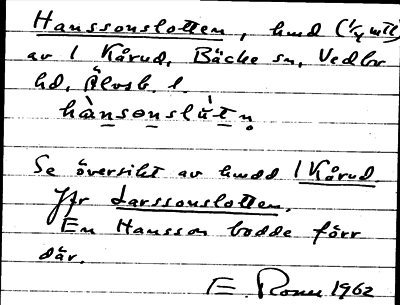 Hanssonslotten, hmd (1/4 mtl)
av 1 Kårud, Bäcke sn, Vedbo
hd, Älvsb. l.
hànsonslútn.
Se översikt av hmdd 1 Kårud.
Jfr Larssonslotten.
En Hansson bodde förr
där.
E. Ronn 1962